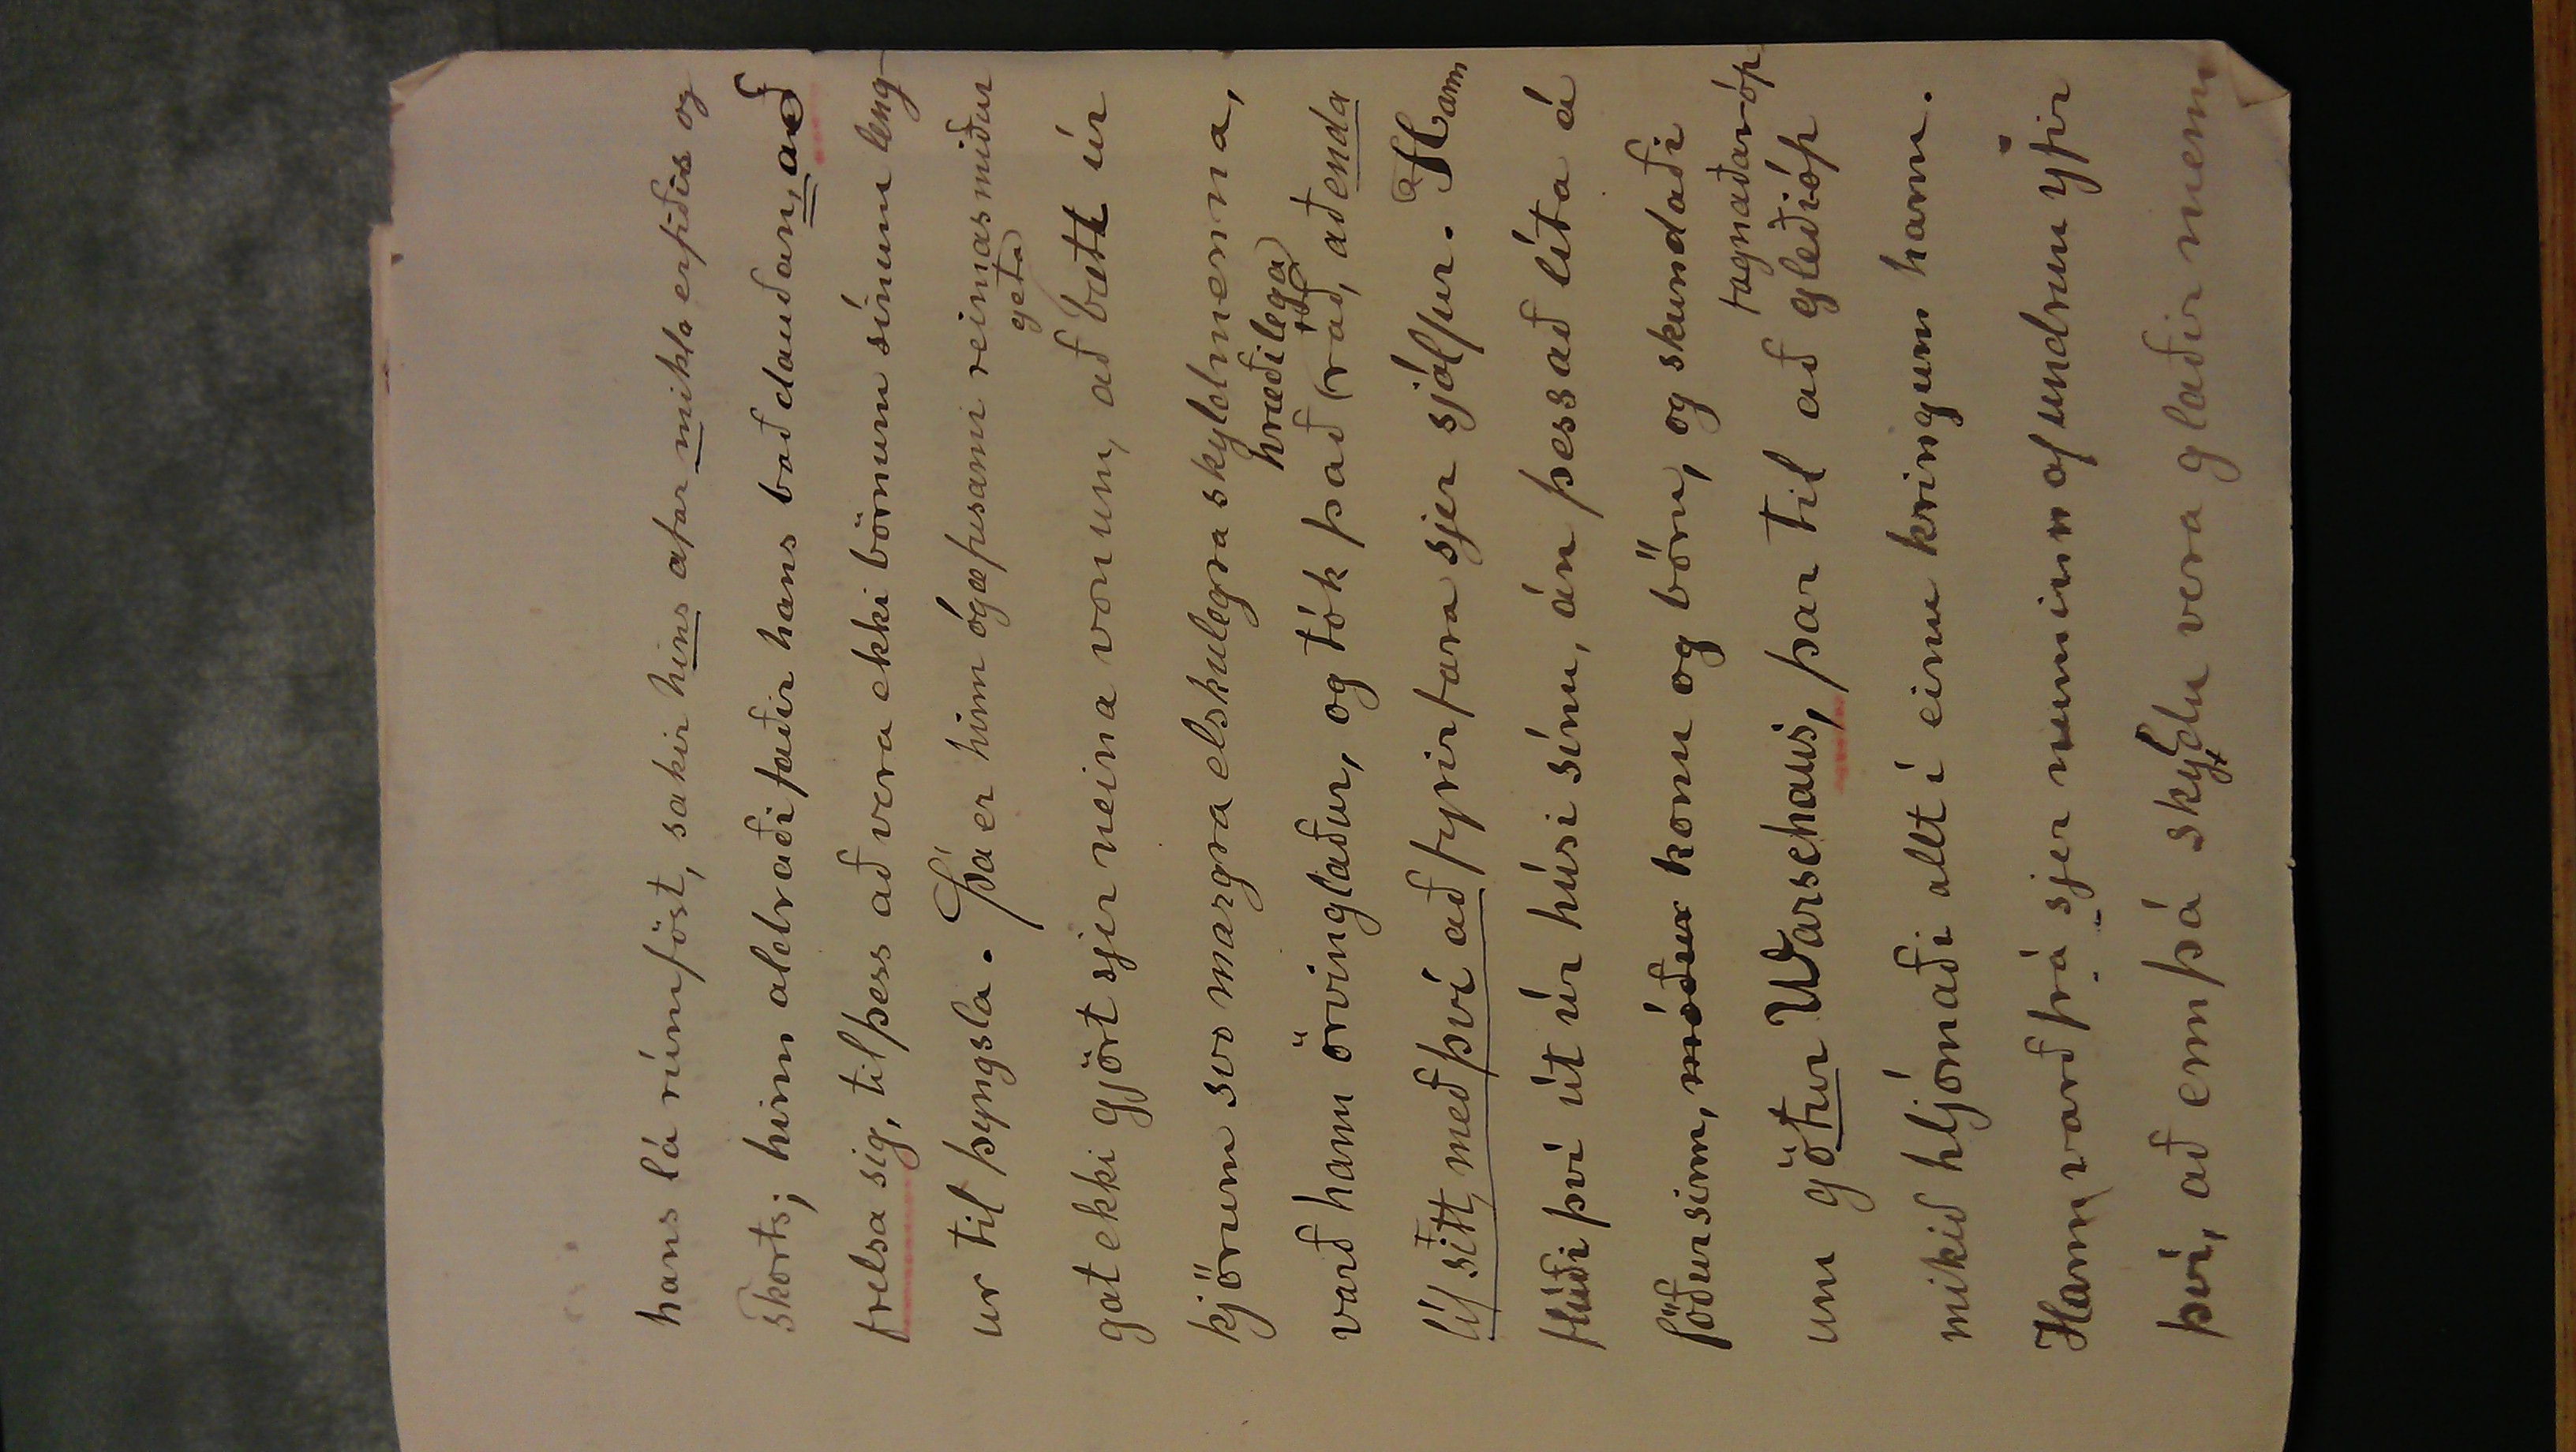 hans lá rúmföst, sakir hins afar mikla erfiðis og
skorts; hinn aldraði faðir hans bað dauðan, að
frelsa sig, til þess að vera ekki börnum sínum leng-
ur til þyngsla. Þá er hinn ógæfusami reimasmiður
geta
gat ekki gjört sjer neina vonum, að bætt úr
kjörum svo margra elskulegra skyldmenna,
hræðilega
varð hann örvinglaður, og tók það (ráð, að enda
líf sitt, með því að fyrirfara sjer sjálfur. Hann
flúði því út úr húsi sínu, án þess að líta á
föðursinn, móður konu og börn, og skundaði
fagnaðaróp
um götur Warschaus, þar til að gleðióp
mikið hljómaði allt í einu kringum hann.
Hann varð frá sjer numinn af undrun yfir
því, að enn þá skyldu vera glaðir menn